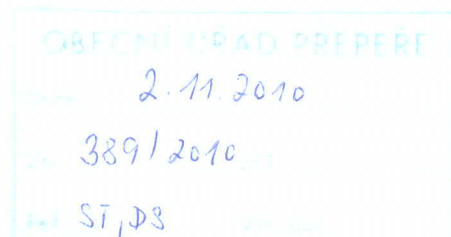 OBECNÍ ÚŘAD PŘEPEŘE
2.11.2010
389/2010
ST,DS